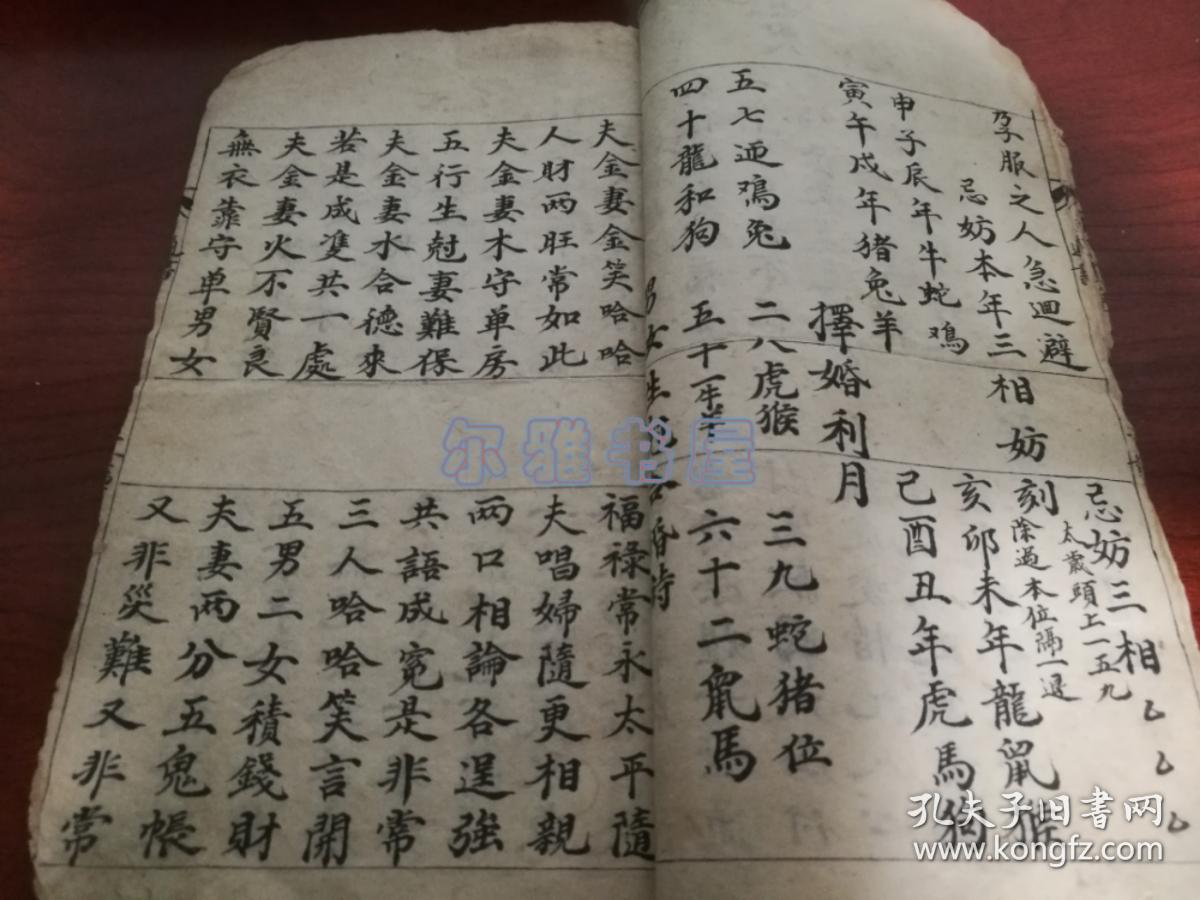 孕服之人急迴避
相妨
忌妨三相
忌妨本年三
刻除過本位隔一退
太歲頭上一五九
申子辰年牛蛇鳮
亥卯未年龍鼠猴
寅午戌年猪兔羊
己酉丑年虎馬狗
擇婚利月
五七迎鳮兔
二八虎猴
三九蛇猪位
四十龍和狗
五十一牛羊
六十二鼠馬
夫金妻金笑哈哈
福祿常永太平隨
人財兩旺常如此
夫唱婦隨更相親
夫金妻木守单房
兩口相論各逞強
五行生尅妻難保
共語成冤是非常
夫金妻水合德來
三人哈哈笑言開
若是成隻共一處
五男二女積錢財
夫金妻火不賢良
夫妻兩分五鬼帳
無衣靠守单男女
又非災難又非常
尔雅书屋
孔夫子旧书网
www.kongfz.com